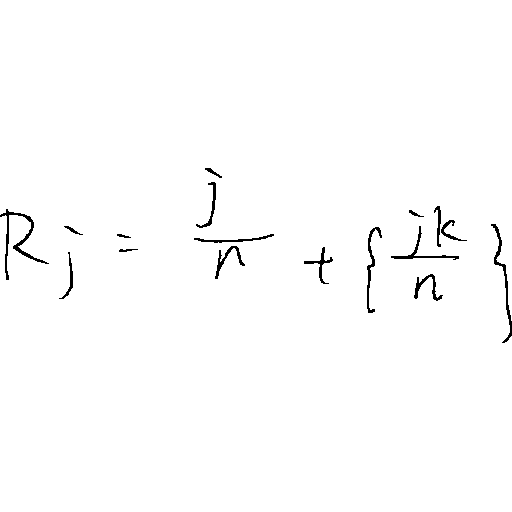 R_j = \frac{j}{n} + \left\{ \frac{jk}{n} \right\}